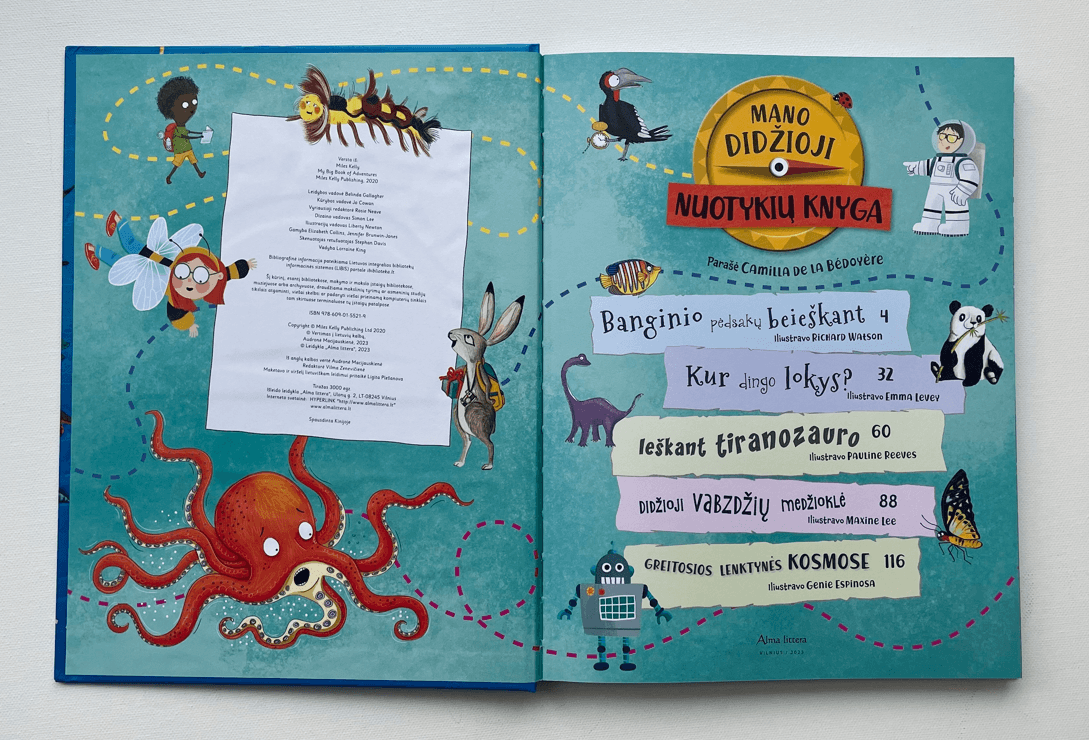 Versta iš:
Miles Kelly
My Big Book of Adventures
Miles Kelly Publishing, 2020
Leidybos vadovė Belinda Gallagher
Kūrybos vadovė Jo Cowan
Vyriausioji redaktorė Rosie Neave
Dizaino vadovas Simon Lee
Iliustracijų vadovas Liberty Newton
Gamyba Elizabeth Collins, Jennifer Brunwin-Jones
Skenuotojas retušuotojas Stephan Davis
Vadyba Lorraine King
Bibliografinė informacija pateikiama Lietuvos integralios bibliotekų
informacinės sistemos (LIBIS) portale ibiblioteka.lt
Šį kūrinį, esantį bibliotekose, mokymo ir mokslo įstaigų bibliotekose,
muziejuose arba archyvuose, draudžiama mokslinių tyrimų ar asmeninių studijų
tikslais atgaminti, viešai skelbti ar padaryti viešai prieinamą kompiuterių tinklais
tam skirtuose terminaluose tų įstaigų patalpose
ISBN 978-609-01-5521-9
Copyright © Miles Kelly Publishing Ltd 2020
© Vertimas į lietuvių kalbą,
Audronė Marijauskienė, 2023
© Leidykla „Alma littera“, 2023
Iš anglų kalbos vertė Audronė Marijauskienė
Redaktorė Vilma Zenevičienė
Maketavo ir viršelį lietuviškam leidimui pritaikė Ligita Plešanova
Tiražas 3000 egz.
Išleido leidykla „Alma littera“, Ulonų g. 2, LT-08245 Vilnius
Interneto svetainė: HYPERLINK "http://www.almalittera.lt"
www.almalittera.lt
Spausdinta Kinijoje
MANO
DIDŽIOJI
NUOTYKIŲ KNYGA
Parašė CAMILLA DE LA BÉDOYÈRE
Banginio pėdsakų beieškant 4
Iliustravo RICHARD WATSON
Kur dingo lokys? 32
Iliustravo EMMA LEVEY
Ieškant tiranozauro 60
Iliustravo PAULINE REEVES
DIDŽIOJI VABZDŽIŲ MEDŽIOKLĖ 88
Iliustravo MAXINE LEE
GREITOSIOS LENKTYNĖS KOSMOSE 116
Iliustravo GENIE ESPINOSA
Alma littera
VILNIUS / 2023